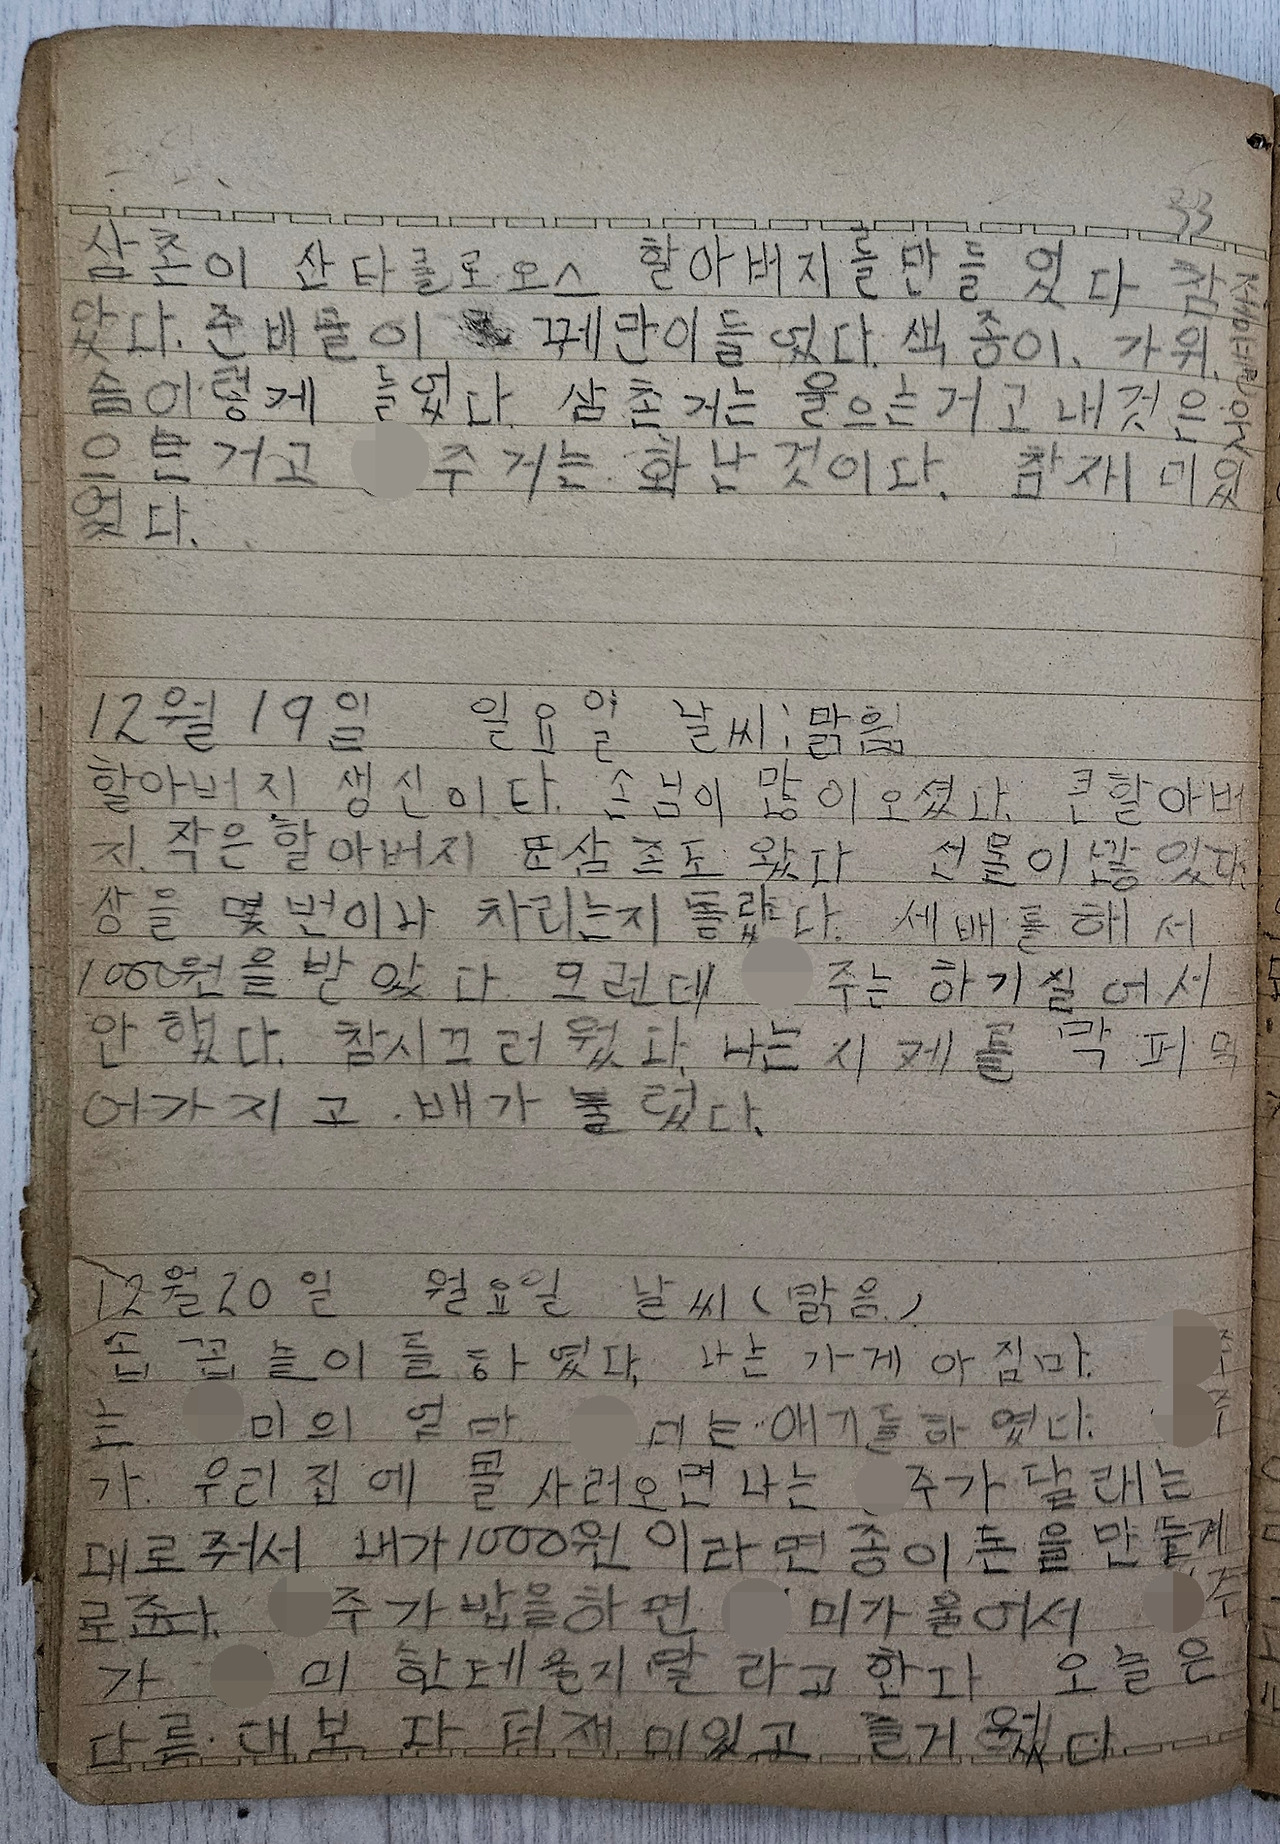 33
삼촌이 산타클로오스 할아버지를만들 었다 참
았다. 준비물이 꾀 만이들었다. 색종이, 가위,
솜이렇게 들었다. 삼촌거는 울으는거고 내것은 웃
으는거고 주거는 화난것이다. 참재미있
었다.
12월 19일 일요일 날씨; 맑힘
할아버지 생신이다. 손님이 많이오셨다. 큰할아버
지. 작은할아버지 또삼촌도 왔다 선물이많있다.
상을 몇번이나 차리는지 몰랐다. 세배를 해서
1000원을 받았다 그런데 주는 하기싫어서
안했다. 참시끄러웠다. 나는 시제를 막 퍼먹
어가지고 배가 불렀다.
12월20일 월요일 날씨(맑음.)
손꼽놀이를하였다, 나는 가게아짐마. 주
는 미의 엄마 미는 애기를하였다. 주
가. 우리집에 콜사러오면 나는 주가 달래는
대로줘서 내가1000원이라면 종이돈을만들게
로준다. 주가밥을하면 미가울어서 주
가 미한테울지말라고한다 오늘은
다름대보다 더재미있고 즐거웠다